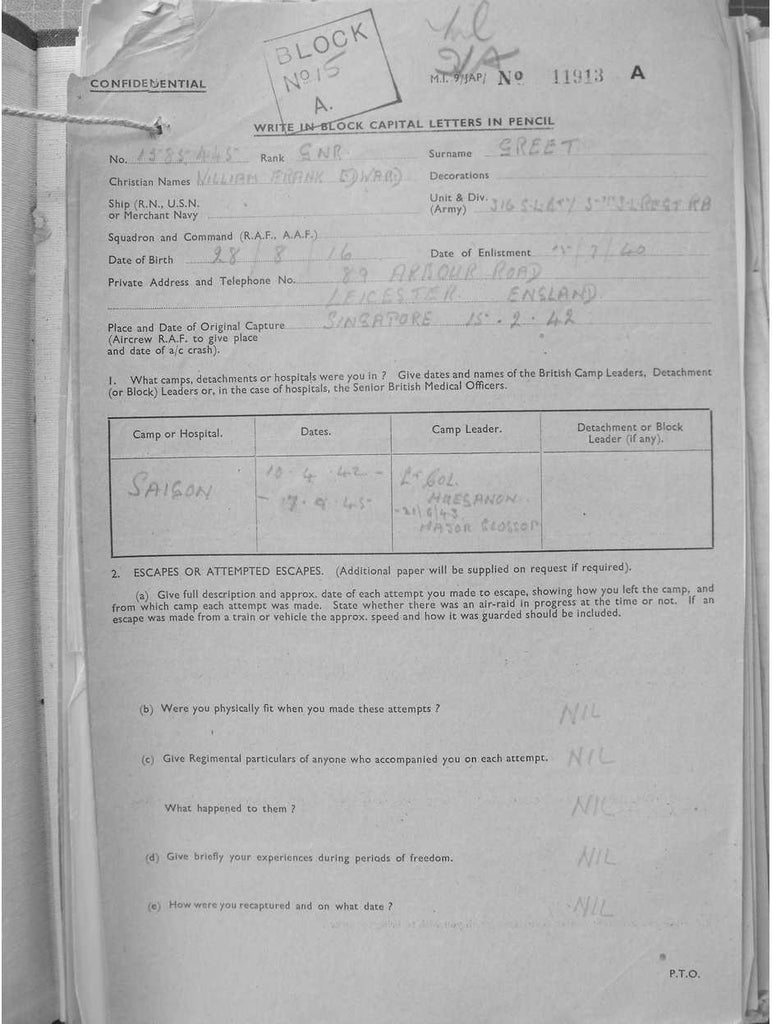 BLOCK
No 15
A.
CONFIDENTIAL
M.I. 9/JAP/ No 11913 A
WRITE IN BLOCK CAPITAL LETTERS IN PENCIL
No. 1585445 Rank GNR Surname GREET
Christian Names WILLIAM FRANK EDWARD Decorations
Ship (R.N., U.S.N. or Merchant Navy
Unit & Div. (Army) 316 S.L. BTY
Squadron and Command (R.A.F., A.A.F.)
Date of Birth 28 / 8 / 16 Date of Enlistment /7/40
Private Address and Telephone No. 89 ARBOUR ROAD
LEICESTER ENGLAND.
Place and Date of Original Capture SINGAPORE 15.2.42
(Aircrew R.A.F. to give place
and date of a/c crash).
1. What camps, detachments or hospitals were you in ? Give dates and names of the British Camp Leaders, Detachment
(or Block) Leaders or, in the case of hospitals, the Senior British Medical Officers.
Camp or Hospital. Dates. Camp Leader. Detachment or Block Leader (if any).
SAIGON 10.4.42 - Lt COL.
- 17.9.45
MAJOR GLOSSOP
2. ESCAPES OR ATTEMPTED ESCAPES. (Additional paper will be supplied on request if required).
(a) Give full description and approx. date of each attempt you made to escape, showing how you left the camp, and
from which camp each attempt was made. State whether there was an air-raid in progress at the time or not. If an
escape was made from a train or vehicle the approx. speed and how it was guarded should be included.
(b) Were you physically fit when you made these attempts ? NIL
(c) Give Regimental particulars of anyone who accompanied you on each attempt. NIL
What happened to them ? NIL
(d) Give briefly your experiences during periods of freedom. NIL
(e) How were you recaptured and on what date ? NIL
P.T.O.